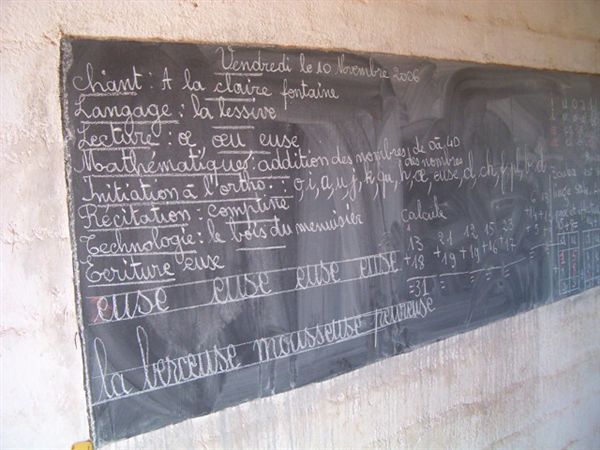 Vendredi le 10 Novembre 2006
Chant : A la claire fontaine
Langage : la lessive
Lecture : œ œu euse
Mathématiques : addition des nombres de 0 à 40
des nombres
Initiation à l'ortho. : o, i, a, u, j, k, qu, h, œ, euse, d, ch, f, ph, b, d
Récitation : comptine
Technologie : le bois du menuisier
Ecriture euse
euse euse euse euse
la berceuse mousseuse peureuse
Calcule
13 21 12 15 25
+18 +19 +19 +16 +17
=31 = = = =